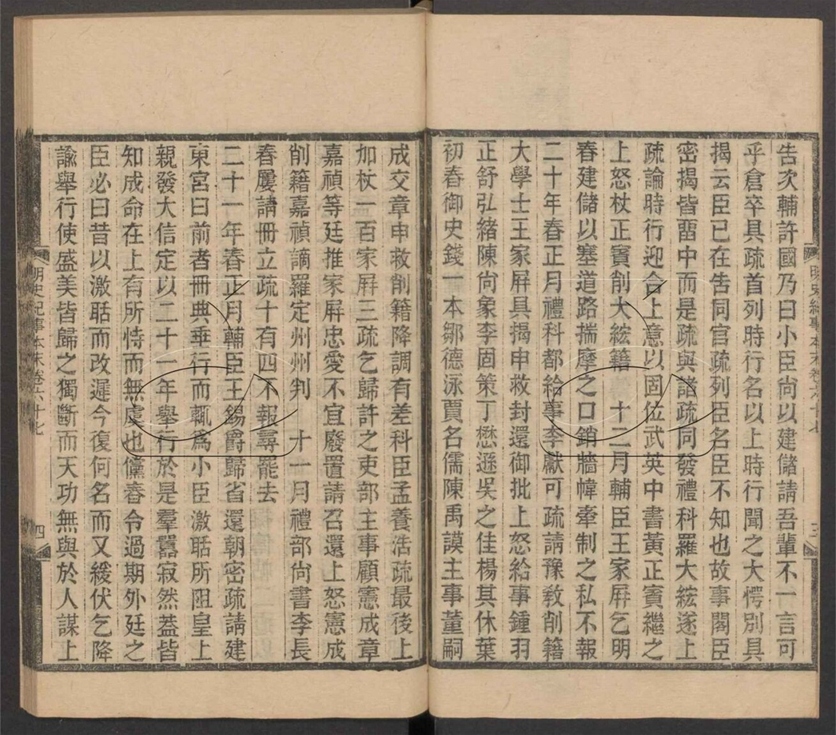 告次輔許國乃曰小臣尚以建儲請吾輩不一言可
乎倉卒具疏首列時行名以上時行聞之大愕別具
揭云臣已在告同官疏列臣名臣不知也故事閣臣
密揭皆畱中而是疏與諸疏同發禮科羅大紘遂上
疏論時行迎合上意以固位武英中書黃正賓繼之
上怒杖正賓削大紘籍　十二月輔臣王家屏乞明
春建儲以塞道路揣摩之口銷牆幃牽制之私不報
二十年春正月禮科都給事李獻可疏請豫敎削籍
大學士王家屏具揭申救封還御批上怒給事鍾羽
正舒弘緒陳尚象李固策丁懋遜吳之佳楊其休葉
初春御史錢一本鄒德泳賈名儒陳禹謨主事董嗣
明史紀事本末卷六十七
三
成交章申救削籍降調有差科臣孟養浩疏最後上
加杖一百家屏三疏乞歸許之吏部主事顧憲成章
嘉禎等廷推家屏忠愛不宜廢置請召還上怒憲成
削籍嘉禎謫羅定州州判　十一月禮部尚書李長
春屢請冊立疏十有四不報尋罷去
二十一年春正月輔臣王錫爵歸省還朝密疏請建
東宮曰前者冊典垂行而輒爲小臣激聒所阻皇上
親發大信定以二十一年舉行於是羣囂寂然葢皆
知成命在上有所恃而無虞也儻春令過期外廷之
臣必曰昔以激聒而改遲今復何名而又緩伏乞降
諭舉行使盛美皆歸之獨斷而天功無與於人謀上
明史紀事本末卷六十七
四